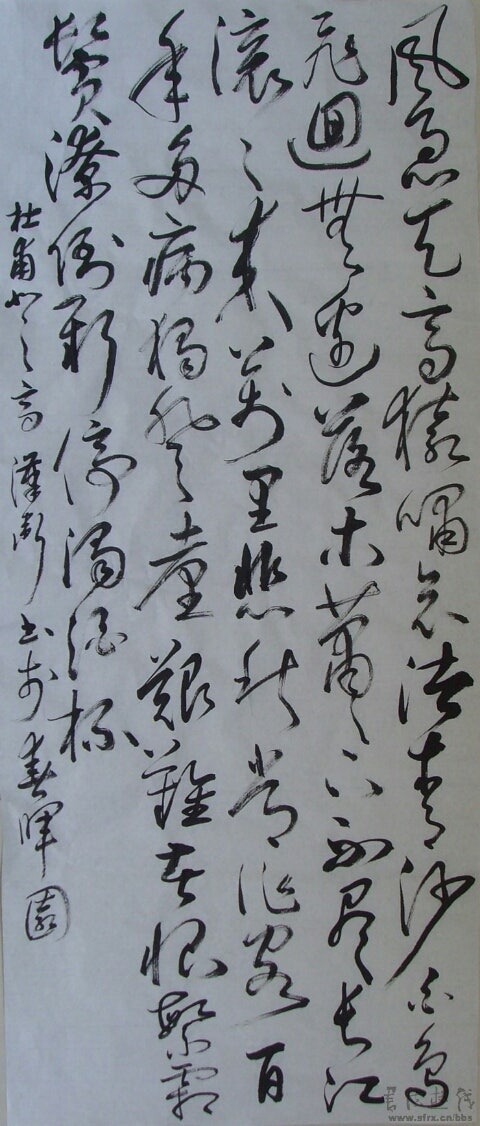 風急天高猿嘯哀渚青沙白鳥
飛迴無邊落木蕭々下不盡長江
滾々來萬里悲秋常作客百
年多病獨登臺艱難苦恨繁霜
鬢潦倒新停濁酒杯
杜甫登高 書於春暉園
www.sfrx.cn/bbs